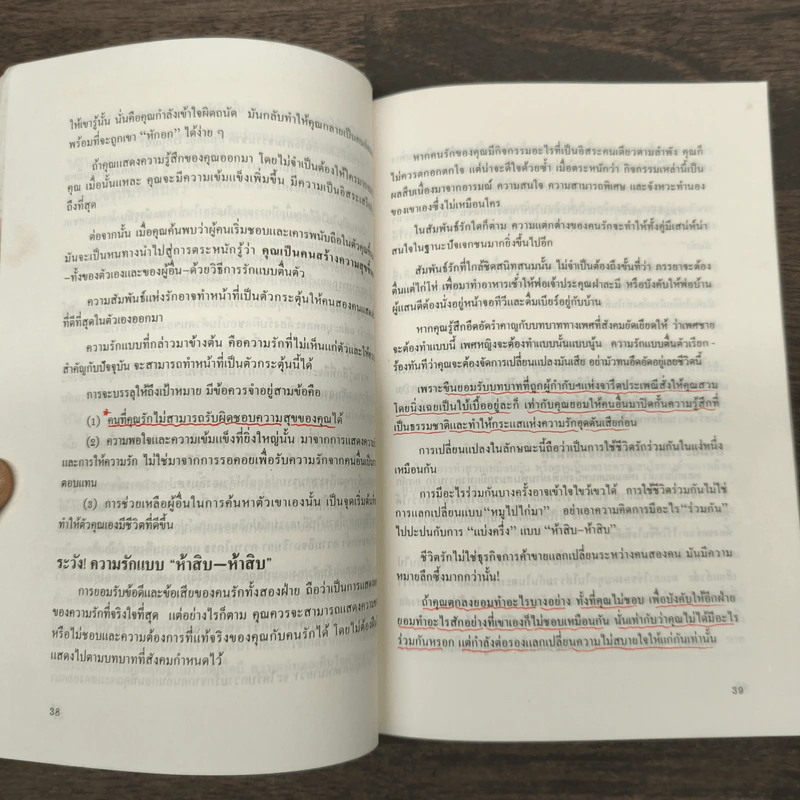 ให้เขารู้นั้น นั่นคือคุณกำลังเข้าใจผิดถนัด มันกลับทำให้คุณกลายเป็นคน
พร้อมที่จะถูกเขา “หักอก” ได้ง่าย ๆ
ถ้าคุณแสดงความรู้สึกของคุณออกมา โดยไม่จำเป็นต้องให้ใครมา
คุณ เมื่อนั้นแหละ คุณจะมีความเข้มแข็งเพิ่มขึ้น มีความเป็นอิสระ
ถึงที่สุด
ต่อจากนั้น เมื่อคุณค้นพบว่าผู้คนเริ่มชอบและเคารพนับถือในตัวคุณ
มันจะเป็นหนทางนำไปสู่การตระหนักรู้ว่า คุณเป็นคนสร้างความสุข
-ทั้งของตัวเองและของผู้อื่น-ด้วยวิธีการรักแบบตื่นตัว
ความสัมพันธ์แห่งรักอาจทำหน้าที่เป็นตัวกระตุ้นให้คนสองคน
ที่ดีที่สุดในตัวเองออกมา
ความรักแบบที่กล่าวมาข้างต้น คือความรักที่ไม่เห็นแก่ตัวและให้
สำคัญกับปัจจุบัน จะสามารถทำหน้าที่เป็นตัวกระตุ้นนี้ได้
การจะบรรลุให้ถึงเป้าหมาย มีข้อควรจำอยู่สามข้อคือ
(1) คนที่คุณรักไม่สามารถรับผิดชอบความสุขของคุณได้
(2) ความพอใจและความเข้มแข็งที่ยิ่งใหญ่นั้น มาจากการแสดง
และการให้ความรัก ไม่ใช่มาจากการรอคอยเพื่อรับความรักจากคนอื่น
ตอบแทน
(3) การช่วยเหลือผู้อื่นในการค้นหาตัวเขาเองนั้น เป็นจุดเริ่มต้น
ทำให้ตัวคุณเองมีชีวิตที่ดีขึ้น
ระวัง! ความรักแบบ “ห้าสิบ—ห้าสิบ”
การยอมรับข้อดีและข้อเสียของคนรักทั้งสองฝ่าย ถือว่าเป็นการแสดง
ของความรักที่จริงใจที่สุด แต่อย่างไรก็ตาม คุณควรจะสามารถแสดงความ
หรือไม่ชอบและความต้องการที่แท้จริงของคุณกับคนรักได้ โดยไม่ต้อง
แสดงไปตามบทบาทที่สังคมกำหนดไว้
38
หากคนรักของคุณมีกิจกรรมอะไรที่เป็นอิสระคนเดียวตามลำพัง คุณก็
ไม่ควรตกอกตกใจ แต่น่าจะดีใจด้วยซ้ำ เมื่อตระหนักว่า กิจกรรมเหล่านี้เป็น
ผลสืบเนื่องมาจากอารมณ์ ความสนใจ ความสามารถพิเศษ และจังหวะทำนอง
ของเขาเองซึ่งไม่เหมือนใคร
ในสัมพันธ์รักใดก็ตาม ความแตกต่างของคนรักจะทำให้ทั้งคู่มีเสน่ห์น่า
สนใจในฐานะปัจเจกชนมากยิ่งขึ้นไปอีก
สัมพันธ์รักที่ใกล้ชิดสนิทสนมนั้น ไม่จำเป็นต้องถึงขั้นที่ว่า ภรรยาจะต้อง
ตื่นแต่ไก่โห่ เพื่อมาทำอาหารเช้าให้พ่อเจ้าประคุณฝ่าละมี หรือบังคับให้พ่อบ้าน
ผู้แสนดีต้องนั่งอยู่หน้าจอทีวีและดื่มเบียร์อยู่กับบ้าน
หากคุณรู้สึกอึดอัดรำคาญกับบทบาททางเพศที่สังคมยัดเยียดให้ ว่าเพศชาย
จะต้องทำแบบนี้ เพศหญิงจะต้องทำแบบนั้นแบบนู้น ความรักแบบตื่นตัวเรียก-
ร้องทันทีว่าคุณจะต้องจัดการเปลี่ยนแปลงมันเสีย อย่ามัวทนอึดอัดอยู่เลยชีวิตนี้
เพราะขืนยอมรับบทบาทที่ถูกผู้กำกับฯแห่งจารีตประเพณีสั่งให้คุณสวม
โดยนิ่งเฉยเป็นใบ้เบื้ออยู่ละก็ เท่ากับคุณยอมให้คนอื่นมาปิดกั้นความรู้สึกที่
เป็นธรรมชาติและทำให้กระแสแห่งความรักอุดตันเสียก่อน
การเปลี่ยนแปลงในลักษณะนี้ถือว่าเป็นการใช้ชีวิตรักร่วมกันในแง่หนึ่ง
เหมือนกัน
การมีอะไรร่วมกันบางครั้งอาจเข้าใจไขว้เขวได้ การใช้ชีวิตร่วมกันไม่ใช่
การแลกเปลี่ยนแบบ“หมูไปไก่มา” อย่าเอาความคิดการมีอะไร“ร่วมกัน”
ไปปะปนกับการ “แบ่งครึ่ง” แบบ “ห้าสิบ-ห้าสิบ”
ชีวิตรักไม่ใช่ธุรกิจการค้าขายแลกเปลี่ยนระหว่างคนสองคน มันมีความ
หมายลึกซึ้งมากกว่านั้น!
ถ้าคุณตกลงยอมทำอะไรบางอย่าง ทั้งที่คุณไม่ชอบ เพื่อบังคับให้อีกฝ่าย
ยอมทำอะไรสักอย่างที่เขาเองก็ไม่ชอบเหมือนกัน นั่นเท่ากับว่าคุณไม่ได้มีอะไร
ร่วมกันหรอก แต่กำลังต่อรองแลกเปลี่ยนความไม่สบายใจให้แก่กันเท่านั้น
39